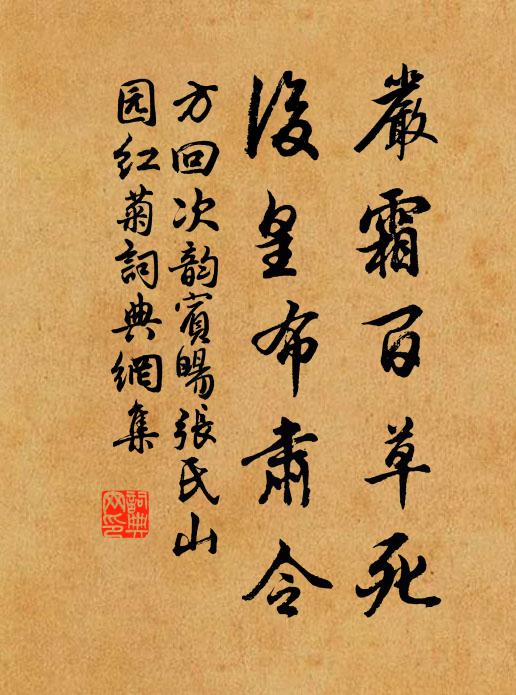 嚴霜百草死
後皇布肅令
方回次韵賓暘張氏山
园紅菊詞典網集
詞典網印